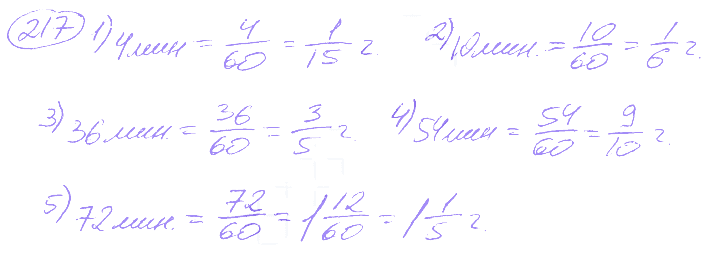 217 1) 4 мин = 4/60 = 1/15 г. 2) 10 мин. = 10/60 = 1/6 г.
3) 36 мин. = 36/60 = 3/5 г. 4) 54 мин = 54/60 = 9/10 г.
5) 72 мин. = 72/60 = 1 12/60 = 1 1/5 г.